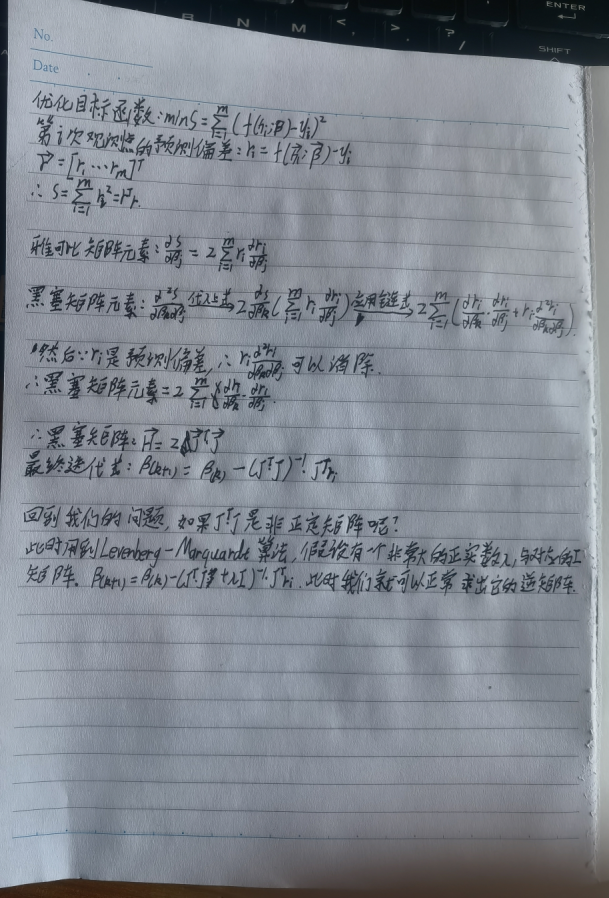 ENTER
N M < > ? /
SHIFT
No.
Date
优化目标函数:minS=∑_{i=1}^{m}(f(x_i;β)-y_i)²
第i次观测点的预测偏差:r_i=f(x⃗_i;β⃗)-y_i
r⃗=[r_1…r_m]ᵀ
∴S=∑_{i=1}^{m}r_i²=rᵀr.
雅可比矩阵元素:∂S/∂β_j=2∑_{i=1}^{m}r_i ∂r_i/∂β_j
黑塞矩阵元素:∂²S/∂β_k∂β_j 代入上式→ 2 ∂S/∂β_k(∑_{i=1}^{m}r_i ∂r_i/∂β_j) 应用链式→ 2∑_{i=1}^{m}(∂r_i/∂β_k·∂r_i/∂β_j+r_i ∂²r_i/∂β_k∂β_j).
然后∵r_i是预测偏差,∴r_i ∂²r_i/∂β_k∂β_j可以消除.
∴黑塞矩阵元素=2∑_{i=1}^{m}∂r_i/∂β_k·∂r_i/∂β_j.
∴黑塞矩阵:H⃗=2J⃗ᵀJ⃗
最终迭代式:β(k+1)=β(k)-(JᵀJ)⁻¹·Jᵀr_i
回到我们的问题,如果JᵀJ是非正定矩阵呢?
此时用到Levenberg-Marquardt算法,假设有一个非常大的正实数λ,与对应的I
矩阵.β(k+1)=β(k)-(JᵀJ+λI)⁻¹·Jᵀr_i.此时我们就可以正常求出它的逆矩阵.